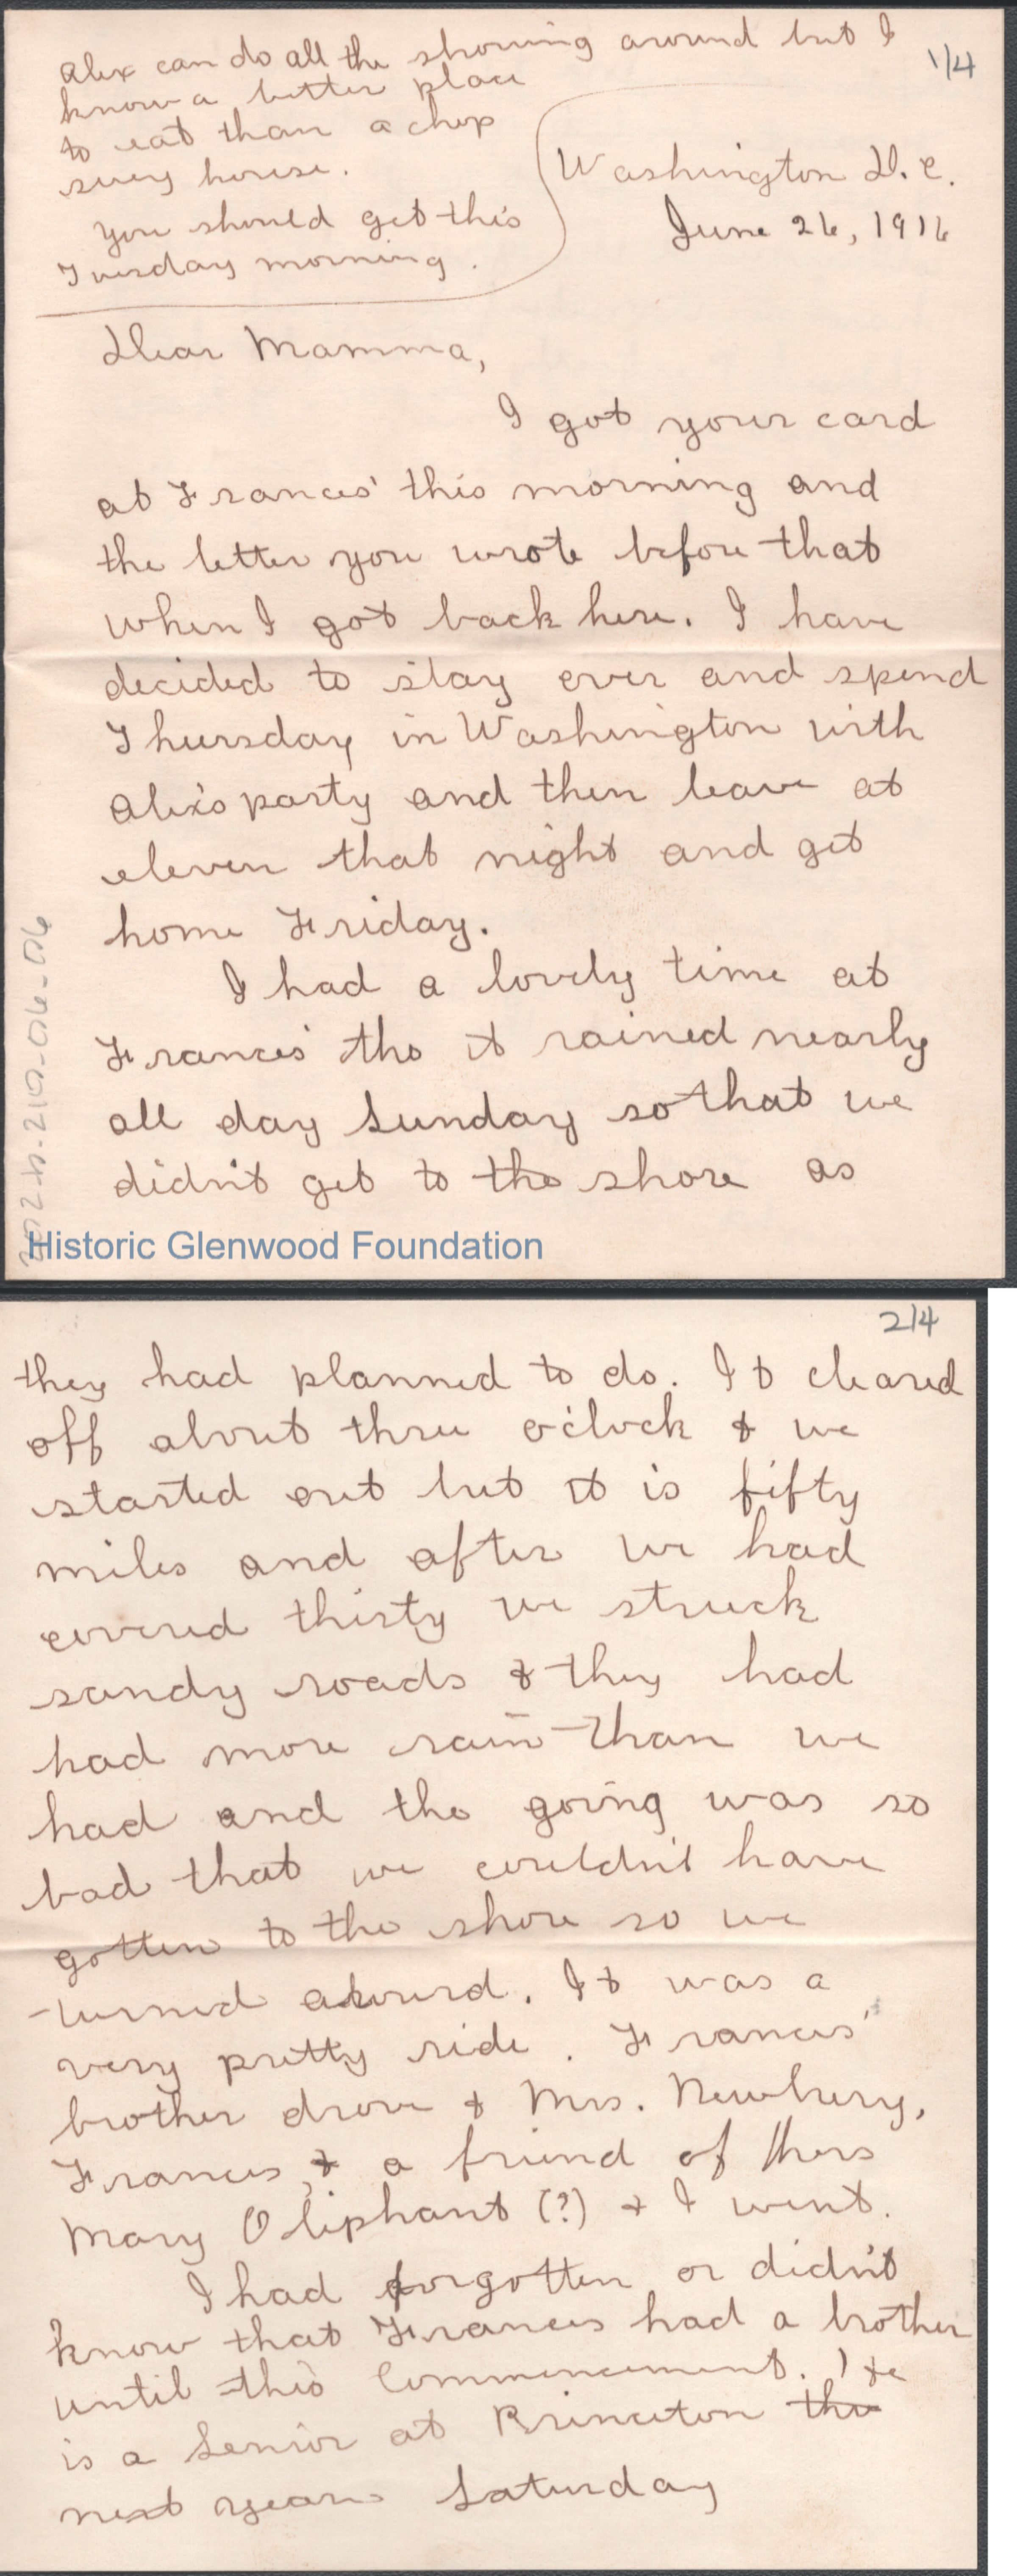 Alex can do all the showing around but I
know a better place
to eat than a chop
suey house.
You should get this
Tuesday morning.
1/4
Washington D.C.
June 26, 1916
Dear Mamma,
I got your card
at Frances' this morning and
the letter you wrote before that
when I got back here. I have
decided to stay over and spend
Thursday in Washington with
Alex's party and then leave at
eleven that night and get
home Friday.
I had a lovely time at
Frances' tho it rained nearly
all day Sunday so that we
didn't get to the shore as
Historic Glenwood Foundation
2/4
they had planned to do. It cleared
off about three o'clock & we
started out but it is fifty
miles and after we had
covered thirty we struck
sandy roads & they had
had more rain than we
had and the going was so
bad that we couldn't have
gotten to the shore so we
turned around. It was a
very pretty ride. Frances'
brother drove & Mrs. Newbury,
Frances, & a friend of hers
Mary Oliphant (?) & I went.
I had forgotten or didn't
know that Frances had a brother
until this Commencement. He
is a Senior at Princeton the
next year. Saturday